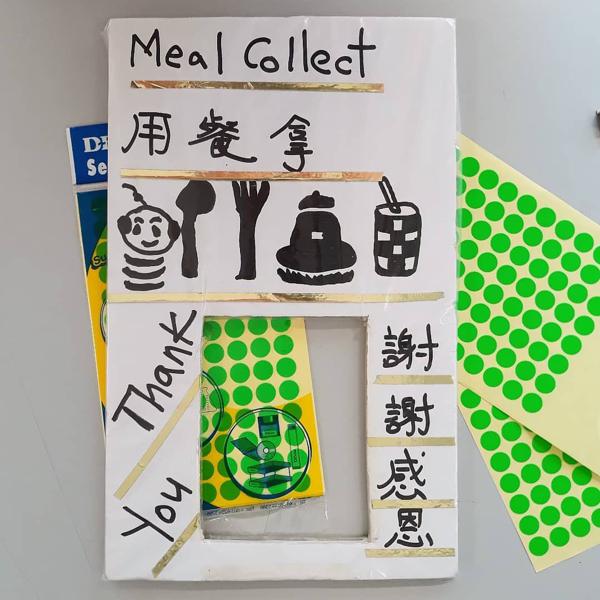 Meal Collect
用餐拿
Thank
You
謝
謝
感
恩